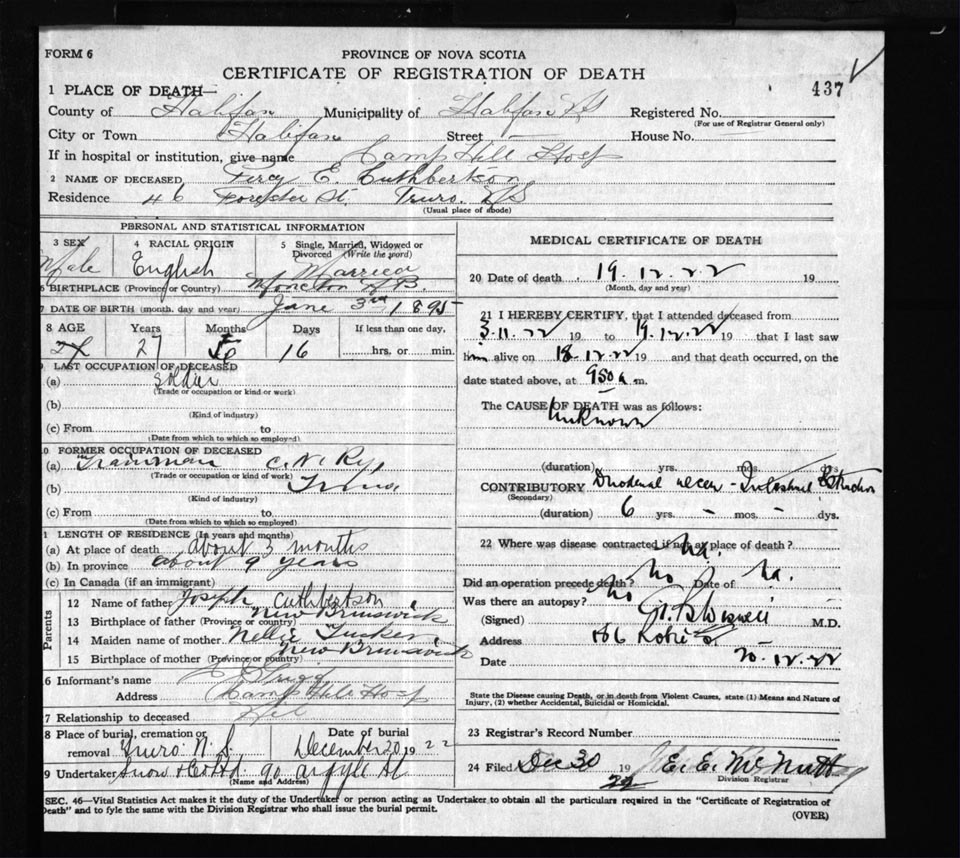 FORM 6
PROVINCE OF NOVA SCOTIA
CERTIFICATE OF REGISTRATION OF DEATH
437
1 PLACE OF DEATH—
County of Halifax Municipality of Halifax NS Registered No.
(For use of Registrar General only)
City or Town Halifax Street — House No.
If in hospital or institution, give name Camp Hill Hosp
2 NAME OF DECEASED Percy E. Cuthbertson
Residence 46 Forester St. Truro. NS
(Usual place of abode)
PERSONAL AND STATISTICAL INFORMATION
3 SEX Male
4 RACIAL ORIGIN English
5 Single, Married, Widowed or Divorced (Write the word) Married
6 BIRTHPLACE (Province or Country) Moncton N.B.
7 DATE OF BIRTH (month, day and year) June 3rd 1895
8 AGE Years Months Days If less than one day,
27 6 16 hrs. or min.
9 LAST OCCUPATION OF DECEASED
(a) Soldier
(Trade or occupation or kind or work)
(b)
(Kind of industry)
(c) From to
(Date from which to which so employed)
10 FORMER OCCUPATION OF DECEASED
(a) Trainman C.N. Ry
(Trade or occupation or kind of work)
(b) Truro
(Kind of industry)
(c) From to
(Date from which to which so employed)
1 LENGTH OF RESIDENCE (In years and months)
(a) At place of death about 3 months
(b) In province about 9 years
(c) In Canada (if an immigrant)
Parents
12 Name of father Joseph Cuthbertson
13 Birthplace of father (Province or country) New Brunswick
14 Maiden name of mother Nellie Tucker
15 Birthplace of mother (Province or country) New Brunswick
6 Informant's name
Address Camp Hill Hosp
7 Relationship to deceased Nil
8 Place of burial, cremation or removal Truro N.S. Date of burial December 20 1922
9 Undertaker Snow & Co Ltd 90 Argyle St
(Name and Address)
MEDICAL CERTIFICATE OF DEATH
20 Date of death 19.12.22 19
(Month, day and year)
21 I HEREBY CERTIFY, that I attended deceased from
3.11.22 19 to 19.12.22 19 that I last saw
him alive on 18.12.22 19 and that death occurred, on the
date stated above, at 9 50 a m.
The CAUSE OF DEATH was as follows:
Unknown
(duration) yrs. mos. dys
CONTRIBUTORY Duodenal ulcer - Intestinal Obstruction
(Secondary)
(duration) 6 yrs. - mos. - dys.
22 Where was disease contracted if not at place of death? na.
Did an operation precede death? no Date of na.
Was there an autopsy? no
(Signed) M.D.
Address 186 Robie St. —
Date 20.12.22
State the Disease causing Death, or in death from Violent Causes, state (1) Means and Nature of
Injury, (2) whether Accidental, Suicidal or Homicidal.
23 Registrar's Record Number
24 Filed Dec 30 19 22 E. E. McNutt
Division Registrar
SEC. 46—Vital Statistics Act makes it the duty of the Undertaker or person acting as Undertaker to obtain all the particulars required in the "Certificate of Registration of
Death" and to fyle the same with the Division Registrar who shall issue the burial permit.
(OVER)